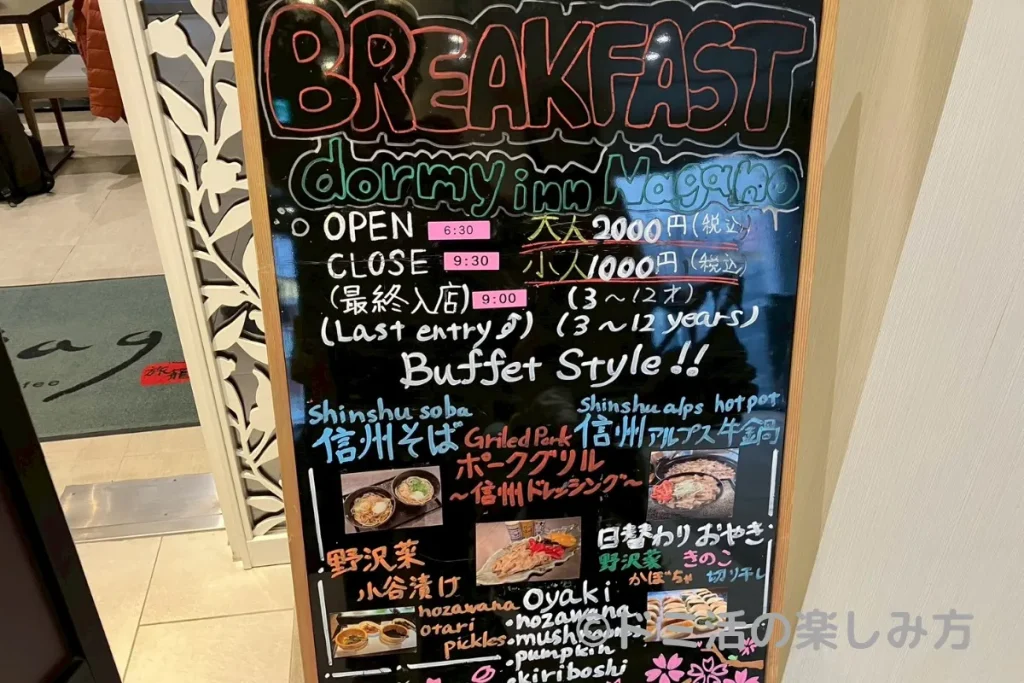 BREAKFAST
dormy inn Nagano
OPEN 6:30 大人 2000円(税込)
CLOSE 9:30 小人 1000円(税込)
(最終入店) 9:00 (3~12才)
(Last entry) (3~12 years)
Buffet Style!!
Shinshu soba
信州そば
Griled Pork
ポークグリル
~信州ドレッシング~
Shinshu alps hot pot
信州アルプス牛鍋
野沢菜
小谷漬け
nozawana
otari
pickles
日替わりおやき
野沢菜 きのこ
かぼちゃ 切り干し
Oyaki
・nozawana
・mushroom
・pumpkin
・kiriboshi
旅籠
の楽しみ方